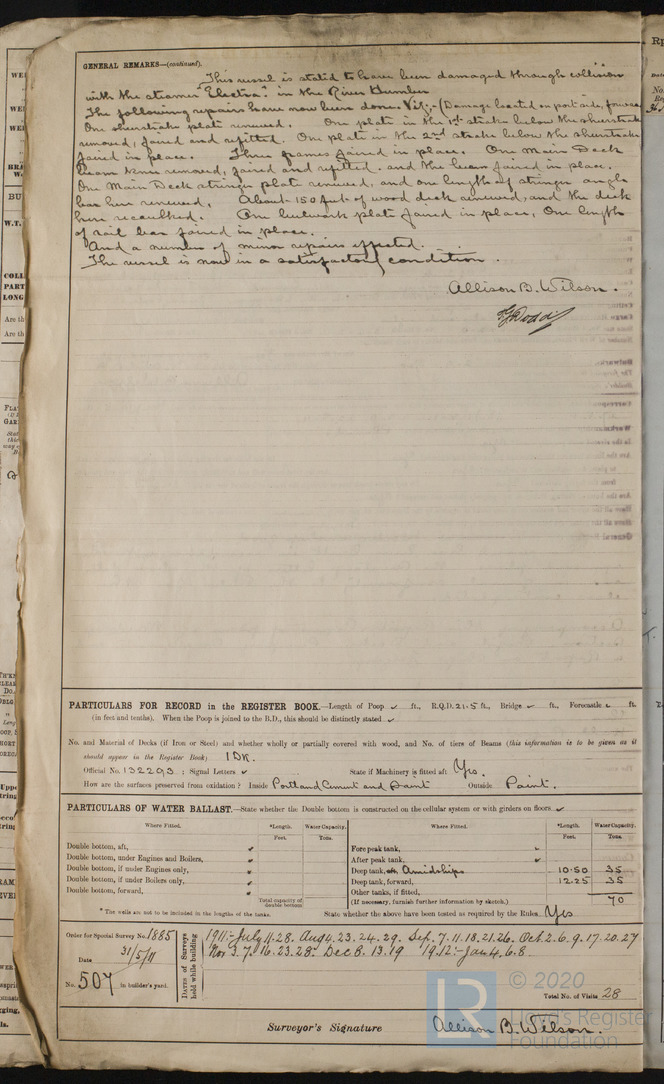 GENERAL REMARKS—(continued).
This vessel is stated to have been damaged through collision
with the steamer "Electra" in the River Humber
The following repairs have now been done. Viz:- (Damage located on port side, forward
One sheerstrake plate renewed. One plate in the 1st strake below the sheerstrake
removed, faired and refitted. One plate in the 2nd strake below the sheerstrake
faired in place. Three frames faired in place. One Main Deck
Beam knee removed, faired and refitted, and the beam faired in place.
One Main Deck stringer plate renewed, and one length of stringer angle
has been renewed. About 150 feet of wood deck renewed, and the deck
been recaulked. One bulwark plate faired in place, One length
of rail bar faired in place.
And a number of minor repairs effected.
The vessel is now in a satisfactory condition.
Allison B. Wilson.
PARTICULARS FOR RECORD in the REGISTER BOOK.—Length of Poop ✓ ft., R.Q.D. 21.5 ft., Bridge ✓ ft., Forecastle ✓ ft.
(in feet and tenths). When the Poop is joined to the B.D., this should be distinctly stated ✓
No. and Material of Decks (if Iron or Steel) and whether wholly or partially covered with wood, and No. of tiers of Beams (this information is to be given as it
should appear in the Register Book) 1 Dk.
Official No. 132293 ; Signal Letters ✓ State if Machinery is fitted aft Yes.
How are the surfaces preserved from oxidation? Inside Portland Cement and Paint Outside Paint.
PARTICULARS OF WATER BALLAST.—State whether the Double bottom is constructed on the cellular system or with girders on floors ✓
Where Fitted. *Length. Water Capacity. Where Fitted. *Length. Water Capacity.
Feet. Tons. Feet. Tons.
Double bottom, aft, ✓ Fore peak tank, ✓
Double bottom, under Engines and Boilers, ✓ After peak tank, ✓
Double bottom, if under Engines only, ✓ Deep tank, aft, Amidships 10.50 35
Double bottom, if under Boilers only, ✓ Deep tank, forward, 12.25 35
Double bottom, forward, ✓ Other tanks, if fitted,
Total capacity of double bottom (If necessary, furnish further information by sketch.) 70
* The wells are not to be included in the lengths of the tanks. State whether the above have been tested as required by the Rules Yes
Order for Special Survey No. 1885
Date 31/5/11
No. 507 in builder's yard.
DATES of Surveys held while building
1911:- July 11.28. Aug 4.23.24.29. Sep. 7.11.18.21.26. Oct. 2.6.9.17.20.27
Nov 3.7.16.23.28. Dec 8.13.19 1912:- Jan 4.6.8
Total No. of Visits 28
Surveyor's Signature Allison B. Wilson.
© 2020
LR
Lloyd's Register
Foundation